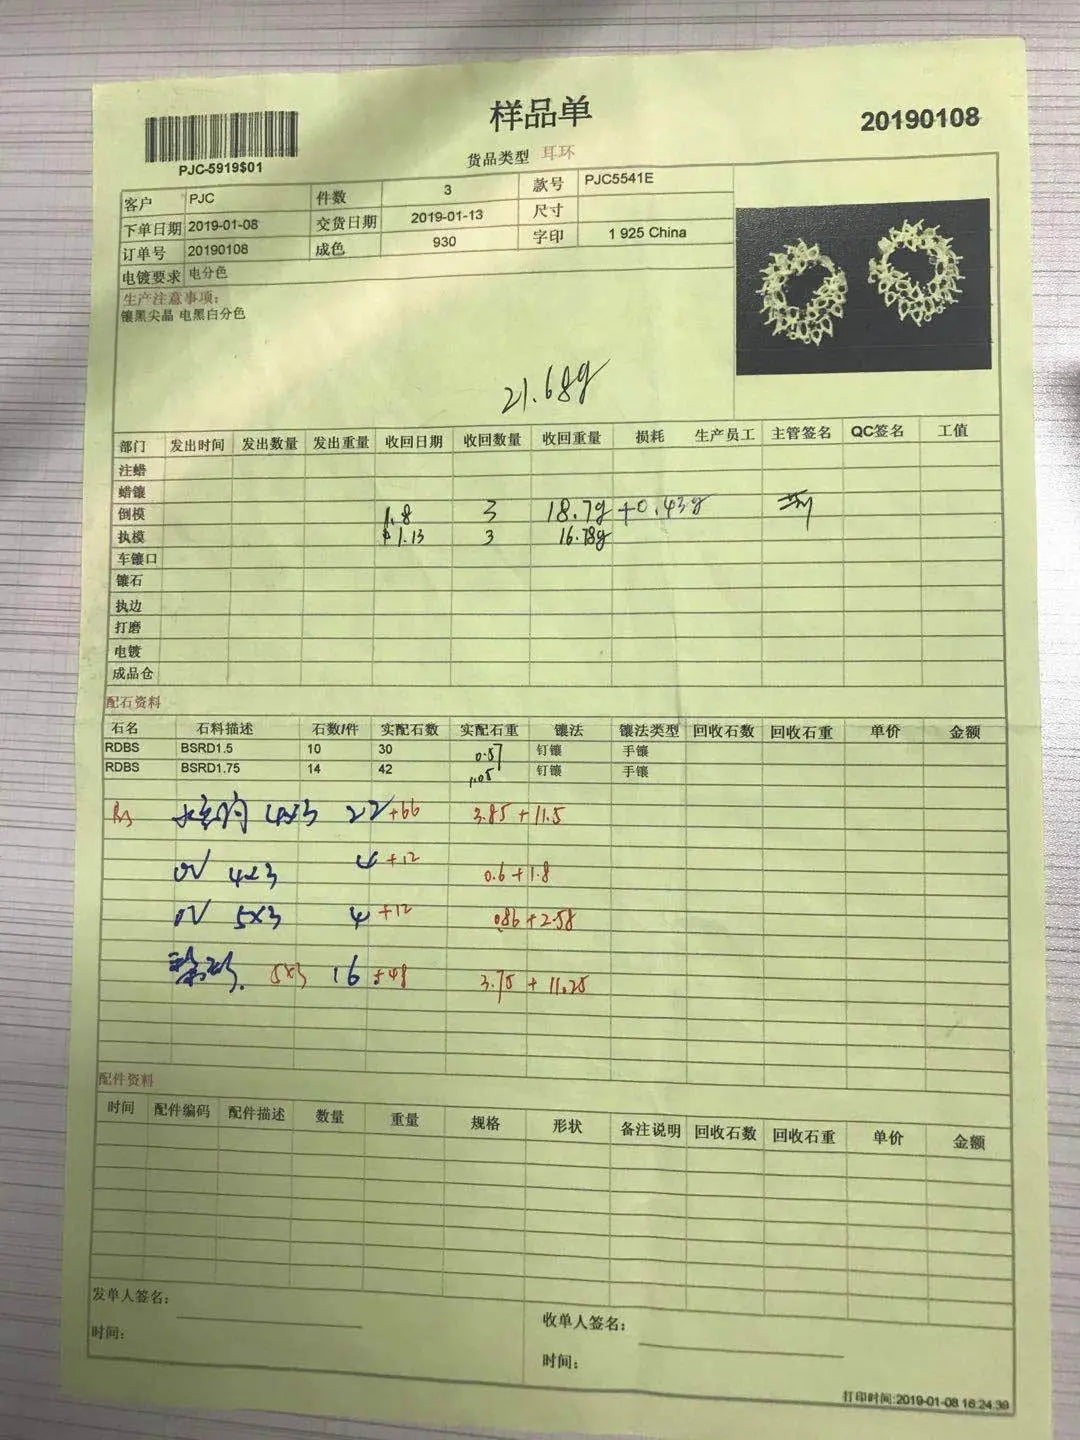 样品单
20190108
PJC-5919$01
货品类型 耳环
客户 PJC 件数 3 款号 PJC5541E
下单日期 2019-01-08 交货日期 2019-01-13 尺寸
订单号 20190108 成色 930 字印 1 925 China
电镀要求 电分色
生产注意事项:
镶黑尖晶 电黑白分色
21.68g
部门 发出时间 发出数量 发出重量 收回日期 收回数量 收回重量 损耗 生产员工 主管签名 QC签名 工值
注蜡
蜡镶
倒模 1.8 3 18.7g +0.43g
执模 1.13 3 16.78g
车镶口
镶石
执边
打磨
电镀
成品仓
配石资料
石名 石料描述 石数/件 实配石数 实配石重 镶法 镶法类型 回收石数 回收石重 单价 金额
RDBS BSRD1.5 10 30 0.57 钉镶 手镶
RDBS BSRD1.75 14 42 1.05 钉镶 手镶
4x3 22+66 3.85+11.5
OV 4x3 4+12 0.6+1.8
OV 5x3 4+12 0.86+2.58
5x3 16+48 3.75+11.25
配件资料
时间 配件编码 配件描述 数量 重量 规格 形状 备注说明 回收石数 回收石重 单价 金额
发单人签名:
收单人签名:
时间:
时间:
打印时间:2019-01-08 16:24:39